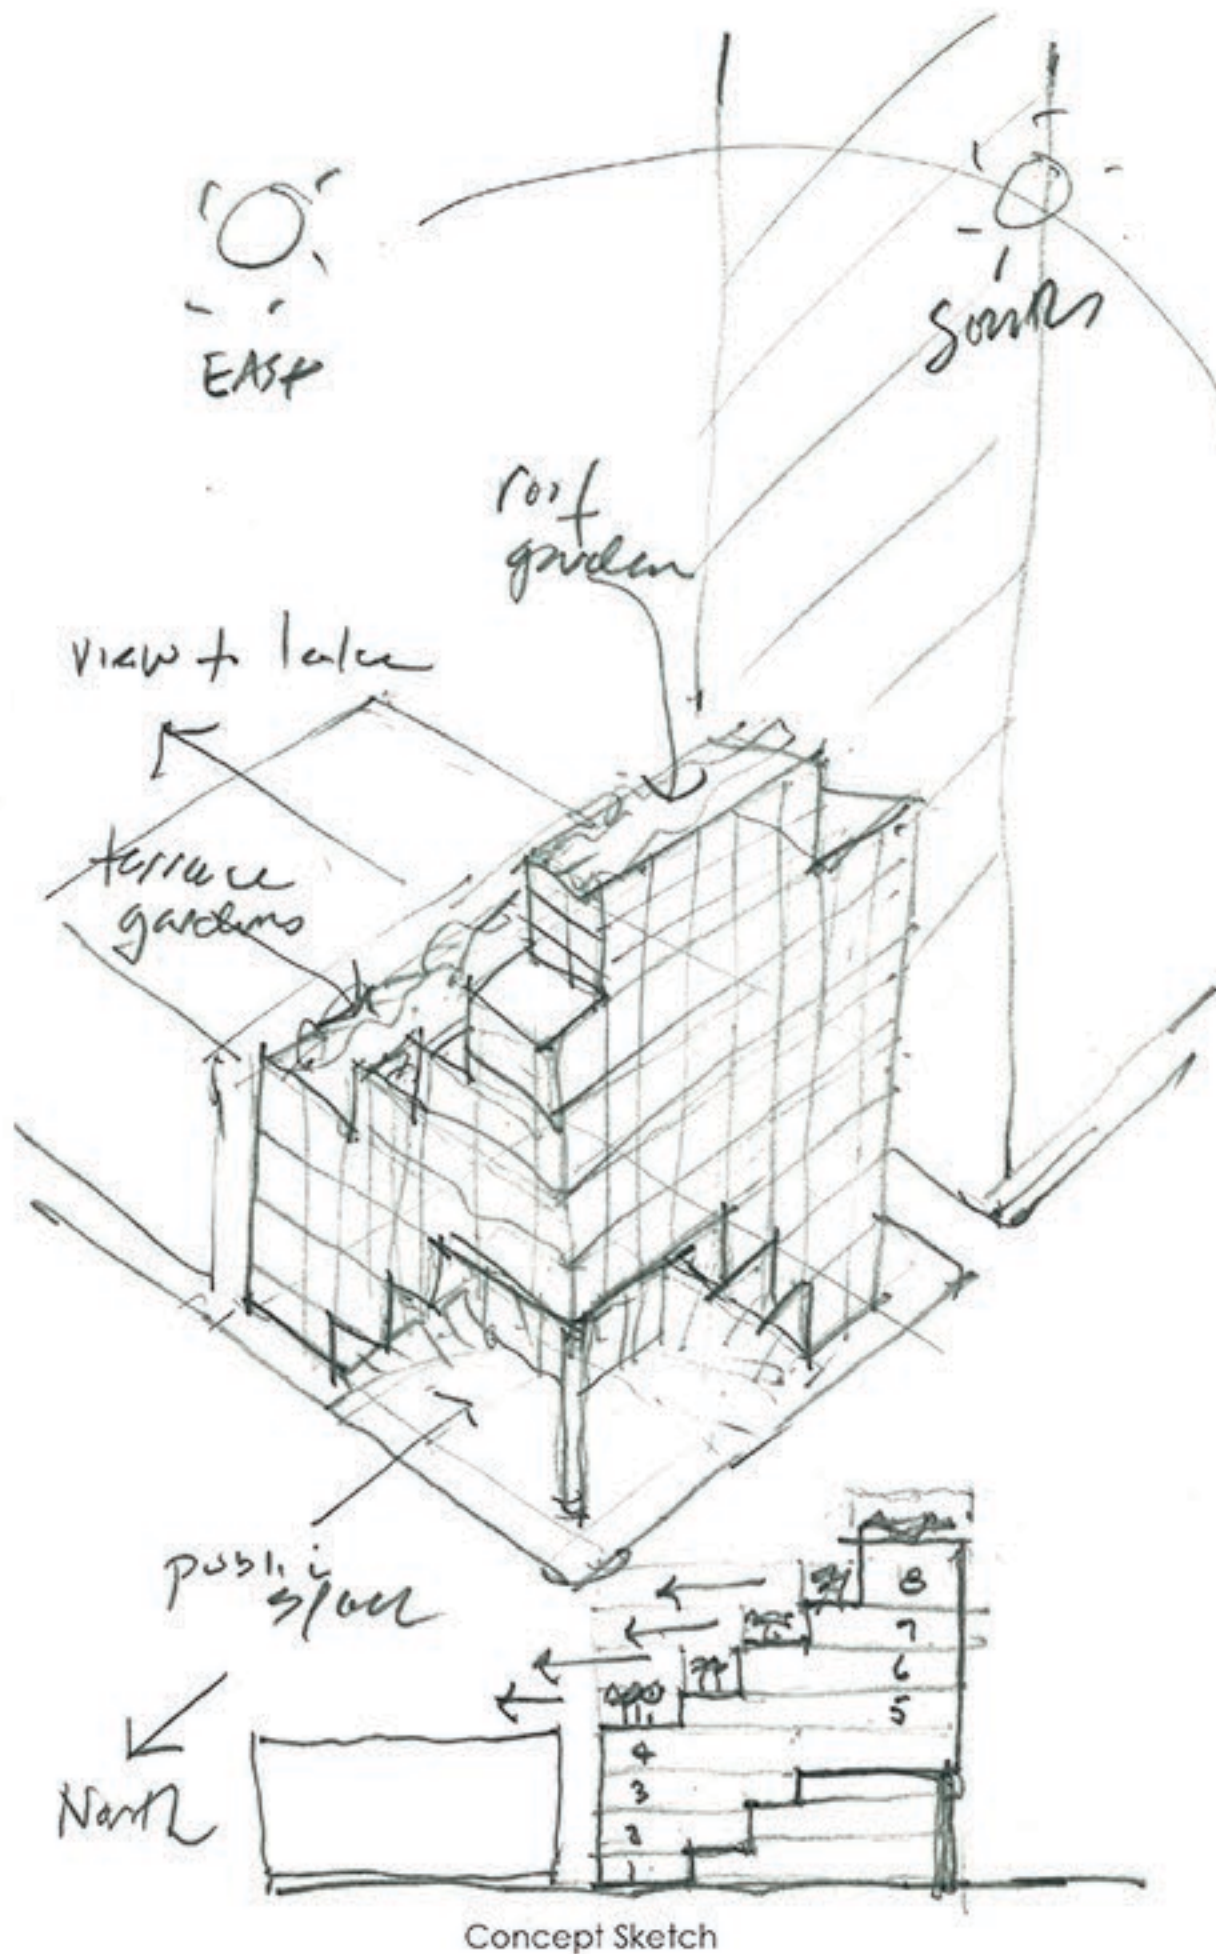 EAST
South
roof
garden
view to lake
terrace
gardens
public
space
North
8
7
6
5
4
3
2
1
Concept Sketch